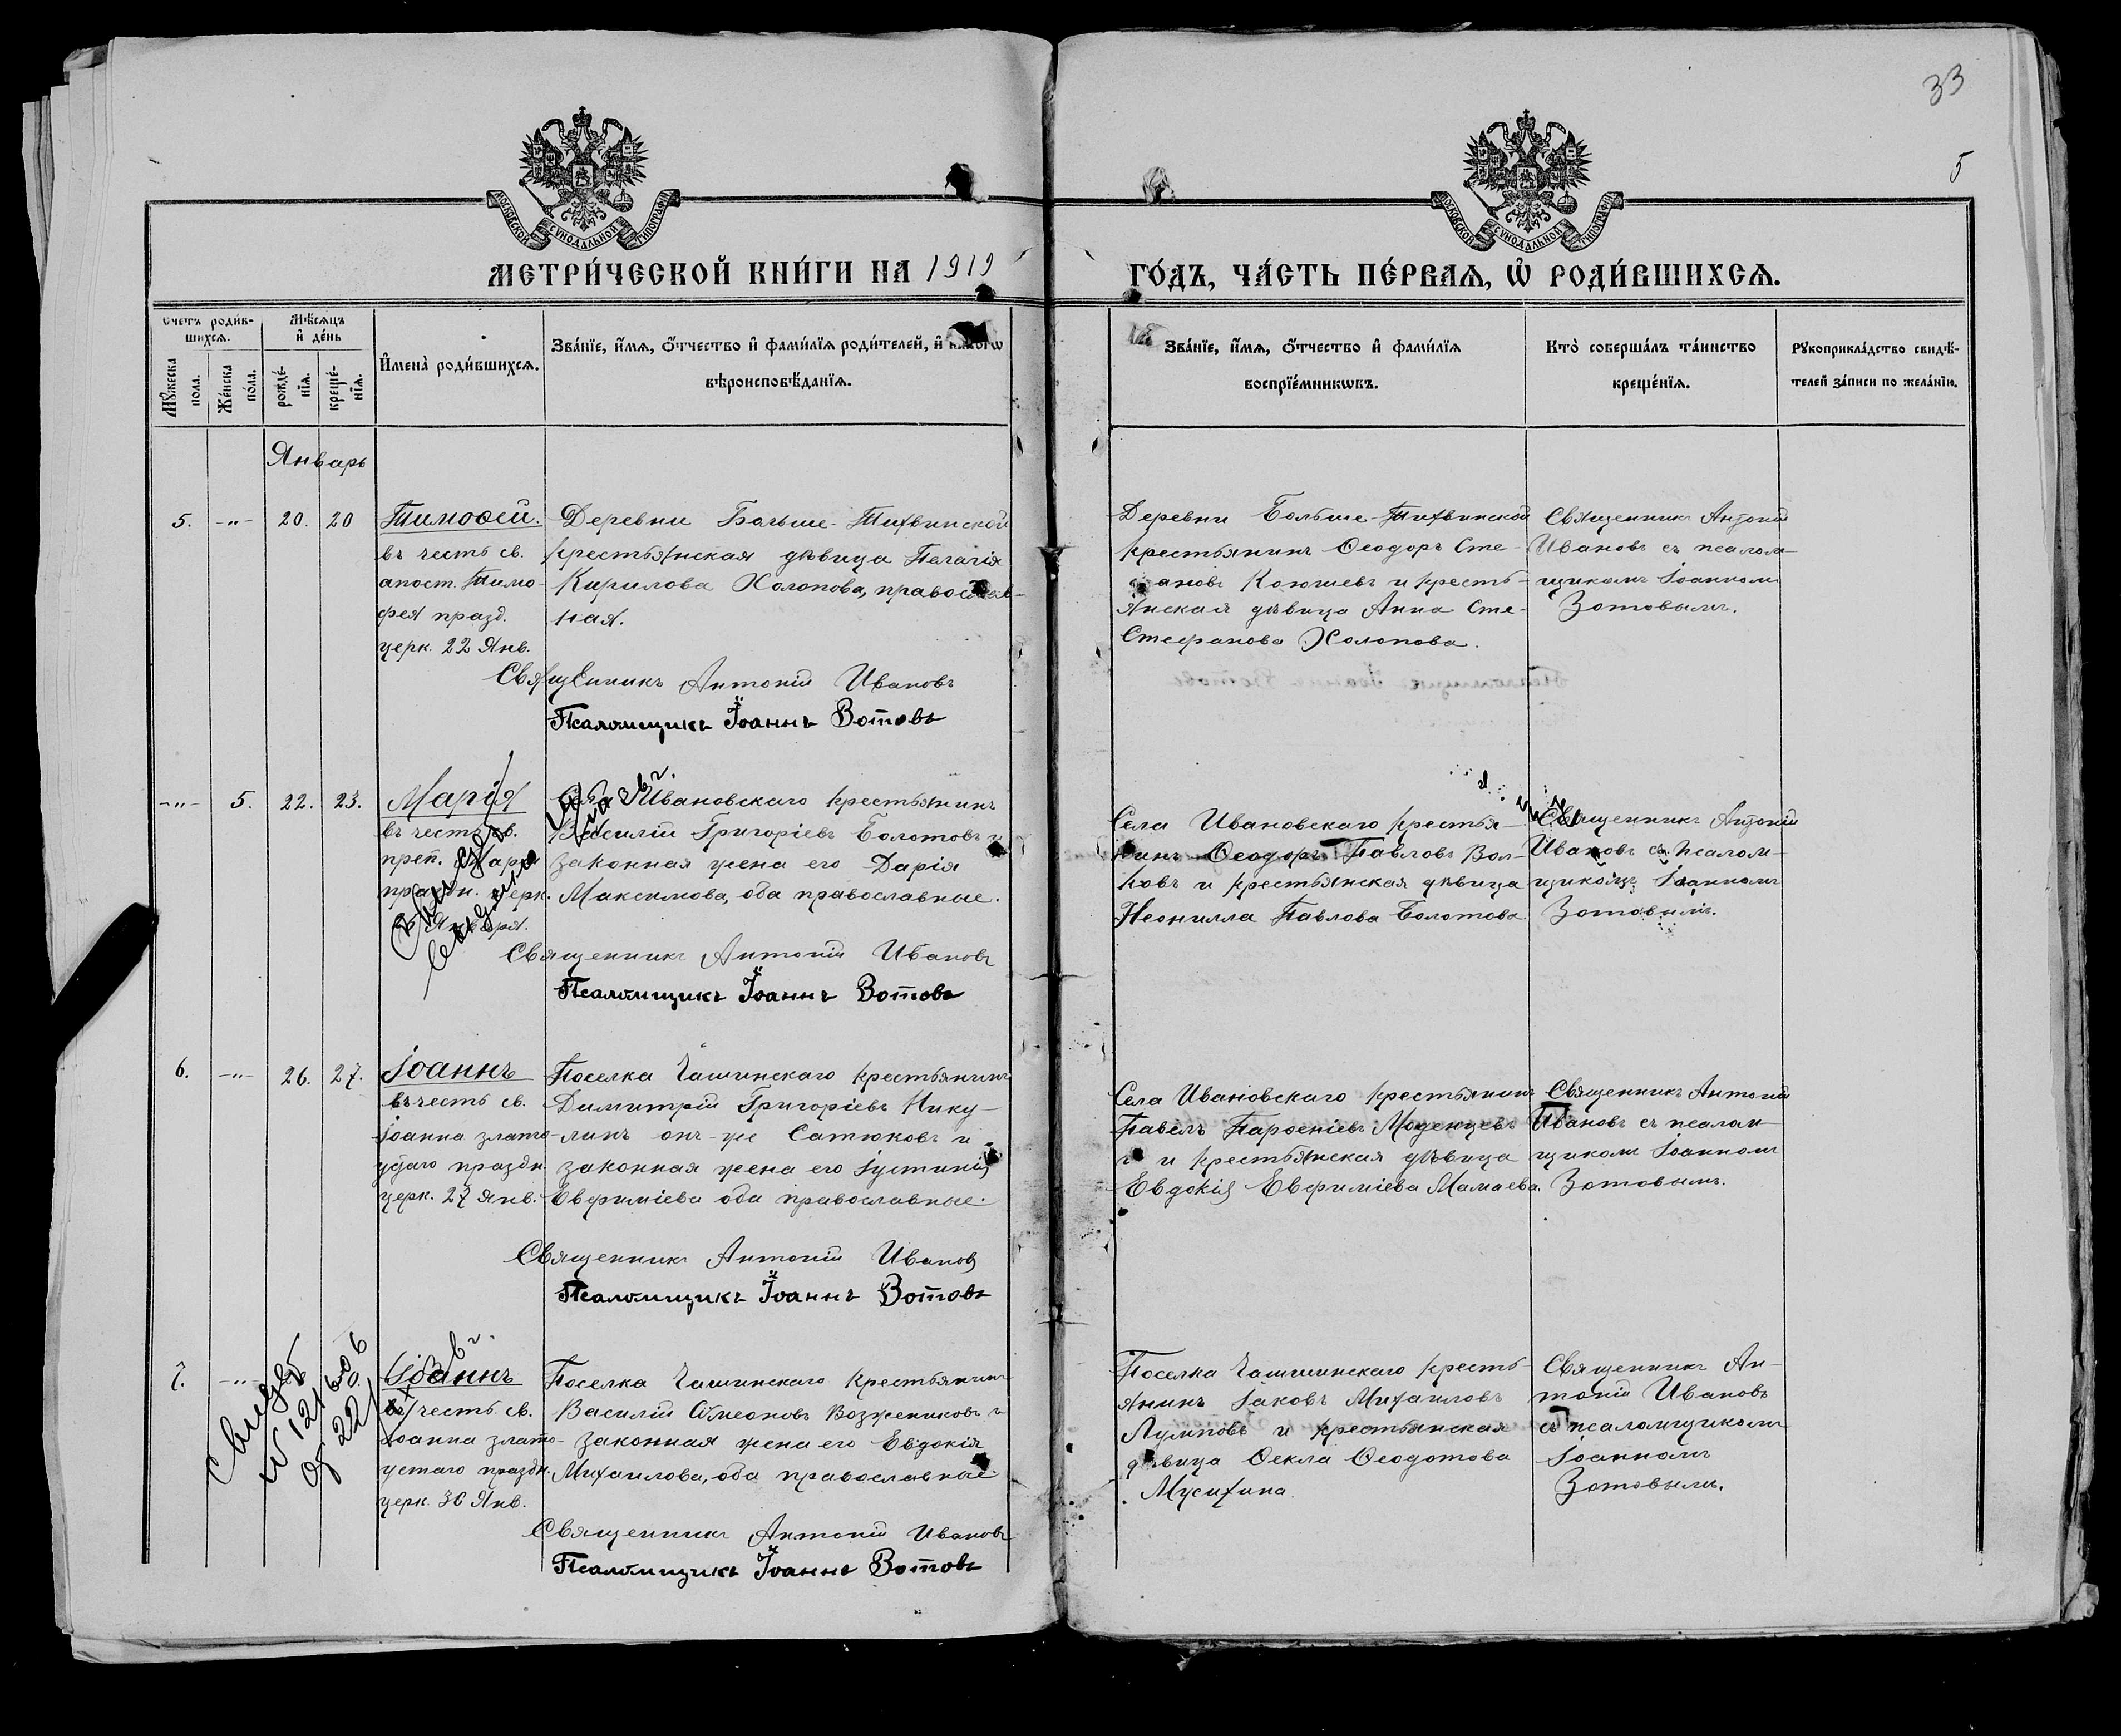 33
5
МОСКОВСКОЙ СУНОДАЛЬНОЙ ТИПОГРАФІИ
МОСКОВСКОЙ СУНОДАЛЬНОЙ ТИПОГРАФІИ
МЕТРИ́ЧЕСКОЙ КНИ́ГИ НА 1919
ГО́ДЪ, ЧА́СТЬ ПЕ́РВАѦ, Ѡ҆ РОДИ́ВШИХСѦ.
Счетъ роди́в-
шихсѧ.
Мѣ́сѧцъ
и҆ де́нь
Мꙋ́жеска
пола.
Же́нска
по́ла.
рожде́-
нїѧ.
креще́-
нїѧ.
И҆мена̀ роди́вшихсѧ.
Зва́нїе, и҆́мѧ, ѻ҆́тчество и҆ фами́лїѧ роди́телей, и҆
вѣроисповѣ́данїѧ.
Зва́нїе, и҆́мѧ, ѻ҆́тчество и҆ фами́лїѧ
воспрїе́мникѡвъ.
Кто̀ соверша́лъ та́инство
креще́нїѧ.
Рꙋкоприкла́дство свидѣ́-
телей за́писи по жела́нїю.
Январь
5. -"- 20. 20
Тимоѳей.
въ честь св.
апост. Тимо-
фея празд.
церк. 22 Янв.
Деревни Больше-Тихвинской
крестьянская дѣвица Пелагія
Кирилова Холопова, православ-
ная.
Священникъ Антоній Ивановъ
Псаломщикъ Іоаннъ Зотовъ
Деревни Больше-Тихвинской
крестьянинъ Ѳеодоръ Сте-
фановъ Коюшевъ и кресть-
янская дѣвица Анна Сте-
Стефанова Холопова.
Священникъ Антоній
Ивановъ съ псалом-
щикомъ Іоанномъ
Зотовымъ.
-"- 5. 22. 23.
Марія
въ честь св.
преп. Маріи
праздн. церк.
Января.
Села Ивановскаго крестьянинъ
Василій Григоріевъ Болотовъ и
законная жена его Дарія
Максимова, оба православные.
Священникъ Антоній Ивановъ
Псаломщикъ Іоаннъ Зотовъ
Села Ивановскаго крестья-
нинъ Ѳеодоръ Павловъ Вол-
ковъ и крестьянская дѣвица
Неонилла Павлова Болотова
Священникъ Антоній
Ивановъ съ псалом-
щикомъ Іоанномъ
Зотовымъ.
6. -"- 26. 27.
Іоаннъ
въ честь св.
Іоанна злато-
устаго праздн.
церк. 27 янв.
Поселка Чашинскаго крестьянинъ
Димитрій Григоріевъ Нику-
линъ онъ-же Сатюковъ и
законная жена его Іустинія
Евфиміева оба православные.
Священникъ Антоній Ивановъ
Псаломщикъ Іоаннъ Зотовъ
Села Ивановскаго крестьянинъ
Павелъ Парѳеніевъ
и крестьянская дѣвица
Евдокія Евфиміева Мамаева.
Священникъ Антоній
Ивановъ съ псалом-
щикомъ Іоанномъ
Зотовымъ.
7. -"-
Іоаннъ
въ честь св.
Іоанна злато-
устаго праздн.
церк. 30 Янв.
Поселка Чашинскаго крестьянинъ
Василій Сѵмеоновъ Возжениковъ и
законная жена его Евдокія
Михаилова, оба православные
Священникъ Антоній Ивановъ
Псаломщикъ Іоаннъ Зотовъ
Поселка Чашинскаго кресть-
янинъ Іаковъ Михаиловъ
Лумповъ и крестьянская
дѣвица Ѳекла Ѳеодотова
Мусихина.
Священникъ Ан-
тоній Ивановъ
съ псаломщикомъ
Іоанномъ
Зотовымъ.